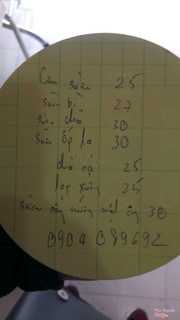 Cơm sườn 25
Sườn bì 27
Sườn chả 30
Sườn ốp la 30
chả cá 25
lạp xưởng 25
Sườn nướng mật ong 30
0904 089692